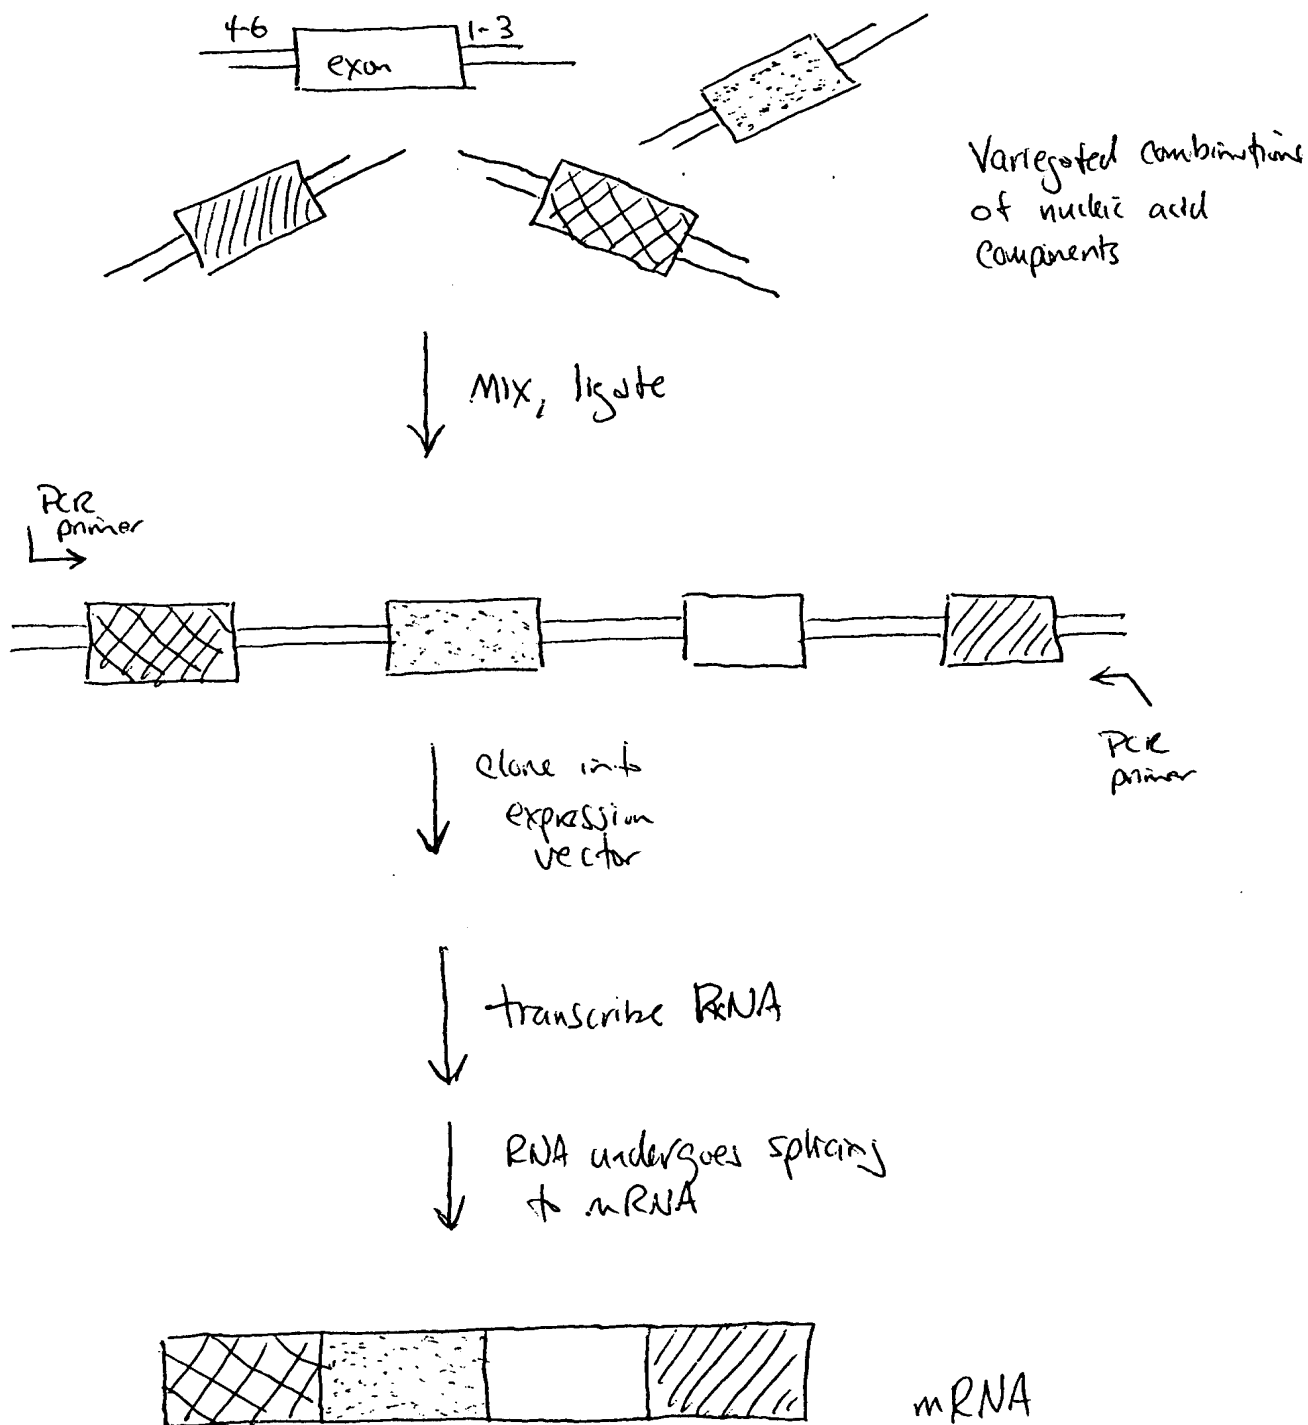 4-6
1-3
exon
Variegated combinations
of nucleic acid
components
Mix, ligate
PCR
primer
PCR
primer
clone into
expression
vector
transcribe RNA
RNA undergoes splicing
to mRNA
mRNA